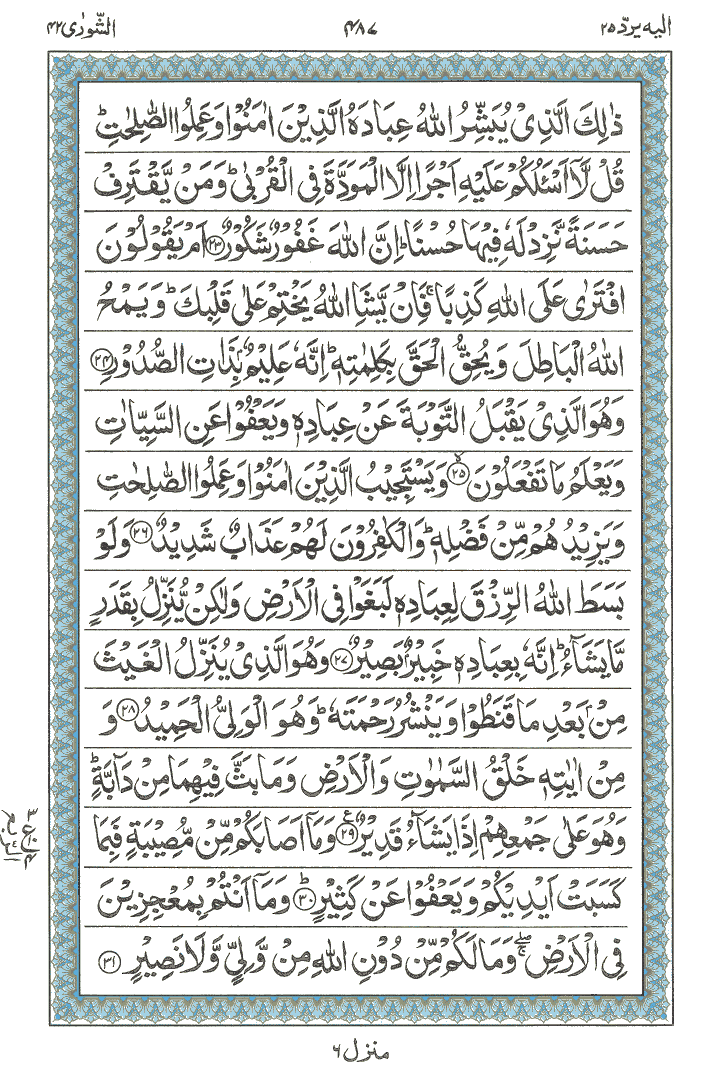 الیه یردّ ۲۵
۴۸۷
الشّورٰی ۴۲
ذٰلِكَ الَّذِیْ یُبَشِّرُ اللّٰهُ عِبَادَهُ الَّذِیْنَ اٰمَنُوْا وَعَمِلُوا الصّٰلِحٰتِؕ
قُلْ لَّاۤ اَسْـَٔلُكُمْ عَلَیْهِ اَجْرًا اِلَّا الْمَوَدَّةَ فِی الْقُرْبٰیؕ وَمَنْ یَّقْتَرِفْ
حَسَنَةً نَّزِدْ لَهٗ فِیْهَا حُسْنًاؕ اِنَّ اللّٰهَ غَفُوْرٌ شَكُوْرٌ ۲۳ اَمْ یَقُوْلُوْنَ
افْتَرٰی عَلَی اللّٰهِ كَذِبًاۚ فَاِنْ یَّشَاِ اللّٰهُ یَخْتِمْ عَلٰی قَلْبِكَؕ وَیَمْحُ
اللّٰهُ الْبَاطِلَ وَیُحِقُّ الْحَقَّ بِكَلِمٰتِهٖؕ اِنَّهٗ عَلِیْمٌۢ بِذَاتِ الصُّدُوْرِ ۲۴
وَهُوَ الَّذِیْ یَقْبَلُ التَّوْبَةَ عَنْ عِبَادِهٖ وَیَعْفُوْا عَنِ السَّیِّاٰتِ
وَیَعْلَمُ مَا تَفْعَلُوْنَ ۲۵ۙ وَیَسْتَجِیْبُ الَّذِیْنَ اٰمَنُوْا وَعَمِلُوا الصّٰلِحٰتِ
وَیَزِیْدُهُمْ مِّنْ فَضْلِهٖؕ وَالْكٰفِرُوْنَ لَهُمْ عَذَابٌ شَدِیْدٌ ۲۶ وَلَوْ
بَسَطَ اللّٰهُ الرِّزْقَ لِعِبَادِهٖ لَبَغَوْا فِی الْاَرْضِ وَلٰكِنْ یُّنَزِّلُ بِقَدَرٍ
مَّا یَشَآءُؕ اِنَّهٗ بِعِبَادِهٖ خَبِیْرٌۢ بَصِیْرٌ ۲۷ وَهُوَ الَّذِیْ یُنَزِّلُ الْغَیْثَ
مِنْۢ بَعْدِ مَا قَنَطُوْا وَیَنْشُرُ رَحْمَتَهٗؕ وَهُوَ الْوَلِیُّ الْحَمِیْدُ ۲۸ وَ
مِنْ اٰیٰتِهٖ خَلْقُ السَّمٰوٰتِ وَالْاَرْضِ وَمَا بَثَّ فِیْهِمَا مِنْ دَآبَّةٍؕ
وَهُوَ عَلٰی جَمْعِهِمْ اِذَا یَشَآءُ قَدِیْرٌ ۲۹ۧ وَمَاۤ اَصَابَكُمْ مِّنْ مُّصِیْبَةٍ فَبِمَا
كَسَبَتْ اَیْدِیْكُمْ وَیَعْفُوْا عَنْ كَثِیْرٍ ۳۰ؕ وَمَاۤ اَنْتُمْ بِمُعْجِزِیْنَ
فِی الْاَرْضِۚۖ وَمَا لَكُمْ مِّنْ دُوْنِ اللّٰهِ مِنْ وَّلِیٍّ وَّلَا نَصِیْرٍ ۳۱
منزل ۶